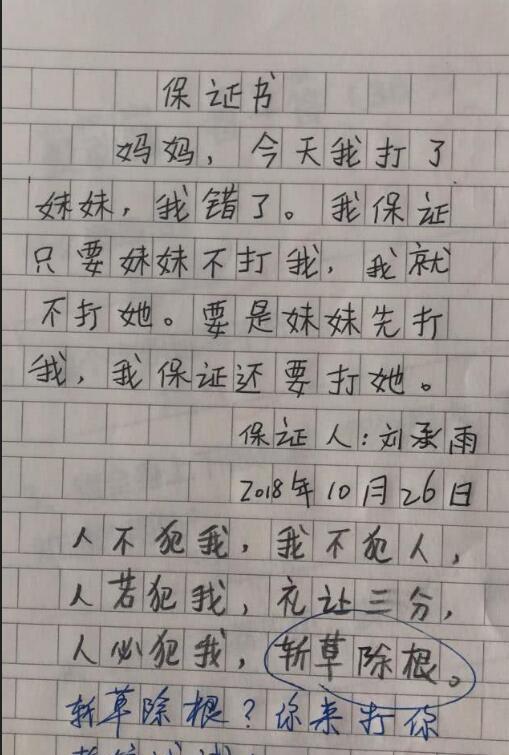 保证书
妈妈，今天我打了
妹妹，我错了。我保证
只要妹妹不打我，我就
不打她。要是妹妹先打
我，我保证还要打她。
保证人：刘承雨
2018年10月26日
人不犯我，我不犯人，
人若犯我，礼让三分，
人必犯我，斩草除根。
斩草除根？你来打你